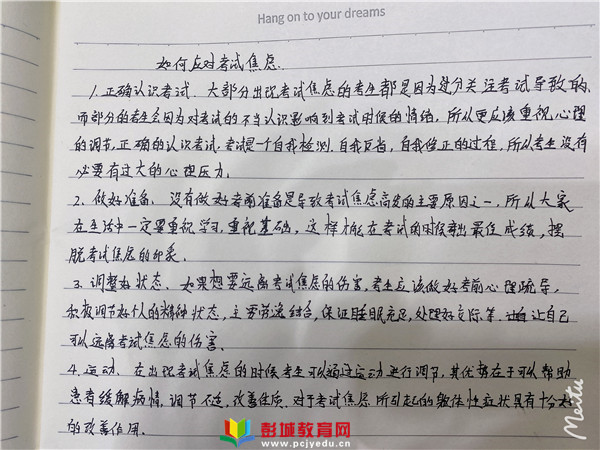 Hang on to your dreams
如何应对考试焦虑
1.正确认识考试、大部分出现考试焦虑的考生都是因为过分关注考试导致的,
而部分的考生会因为对考试的不当认识影响到考试时候的情绪,所以更应该重视心理
的调节,正确的认识考试.考试是一个自我检测.自我反省,自我修正的过程,所以考生没有
必要有过大的心理压力.
2、做好准备、没有做好考前准备是导致考试焦虑高发的主要原因之一,所以大家
在生活中一定要重视学习,重视基础,这样才能在考试的时候考出最佳成绩,摆
脱考试焦虑的印象、
3、调整好状态、如果想要远离考试焦虑的伤害,考生应该做好考前心理疏导,
积极调节好个人的精神状态,主要劳逸结合,保证睡眠充足,处理好交际等.让自己
可以远离考试焦虑的伤害、
4、运动、在出现考试焦虑的时候考生可以通过运动进行调节,其优势在于可以帮助
患者缓解病情,调节不适,改善体质、对于考试焦虑所引起的躯体性症状具有十分大
的改善作用.
彭城教育网
www.pcjyedu.cn
Meitu